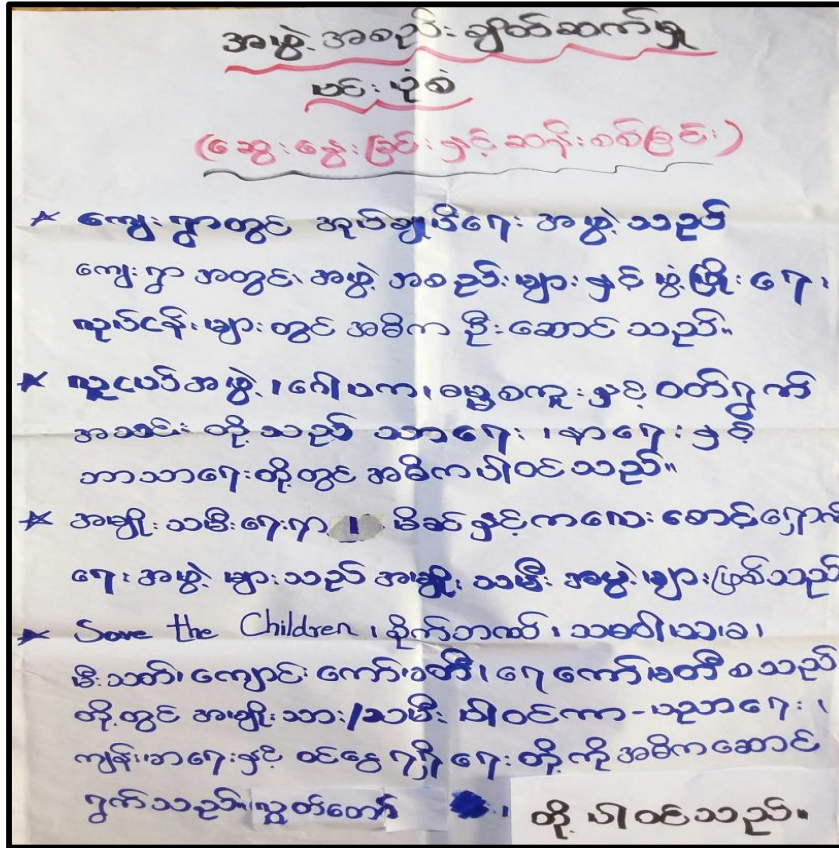 အဖွဲ့အစည်းချိတ်ဆက်မှု
ပင်းပုံစံ
(ဆွေးနွေးခြင်းနှင့်ဆန်းစစ်ခြင်း)
* ကျေးရွာတွင် အုပ်ချုပ်ရေး အဖွဲ့သည်
ကျေးရွာ အတွင်း၊ အဖွဲ့ အစည်းများနှင့် ဖွံ့ဖြိုးရေး
လုပ်ငန်းများတွင် အဓိက ဦးဆောင်သည်။
* လူငယ်အဖွဲ့၊ဂေါပက၊ဓမ္မစကူးနှင့် ဝတ်ရွက်
အသင်း တို့သည် သာရေး၊နာရေးနှင့်
ဘာသာရေးတို့တွင် အဓိကပါဝင်သည်။
* အမျိုးသမီးရေးရာ ၊ မိခင်နှင့်ကလေး စောင့်ရှောက်
ရေးအဖွဲ့ များသည် အမျိုးသမီး အဖွဲ့များဖြစ်သည်
* Save the Children ၊ စိုက်ဘဏ်၊ သမဝါယမ၊
မီးသတ်၊ ကျောင်းကော်မတီ၊ ရေကော်မတီ စသည်
တို့တွင် အမျိုးသား/သမီး ပါဝင်ကာ-ပညာရေး၊
ကျန်းမာရေးနှင့် ဝင်ငွေ ရရှိရေးတို့ကိုအဓိကဆောင်
ရွက်သည်။ လွှတ်တော် ၊ တို့ ပါဝင်သည်။